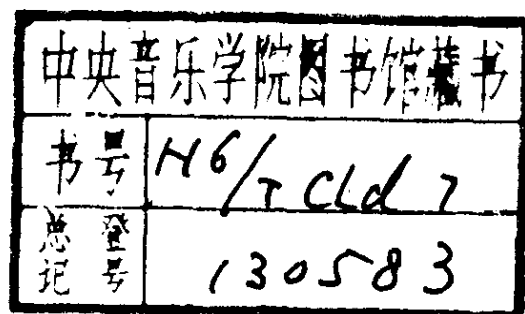 中央音乐学院图书馆藏书
书号 H6/T CLd 7
总登记号 130583